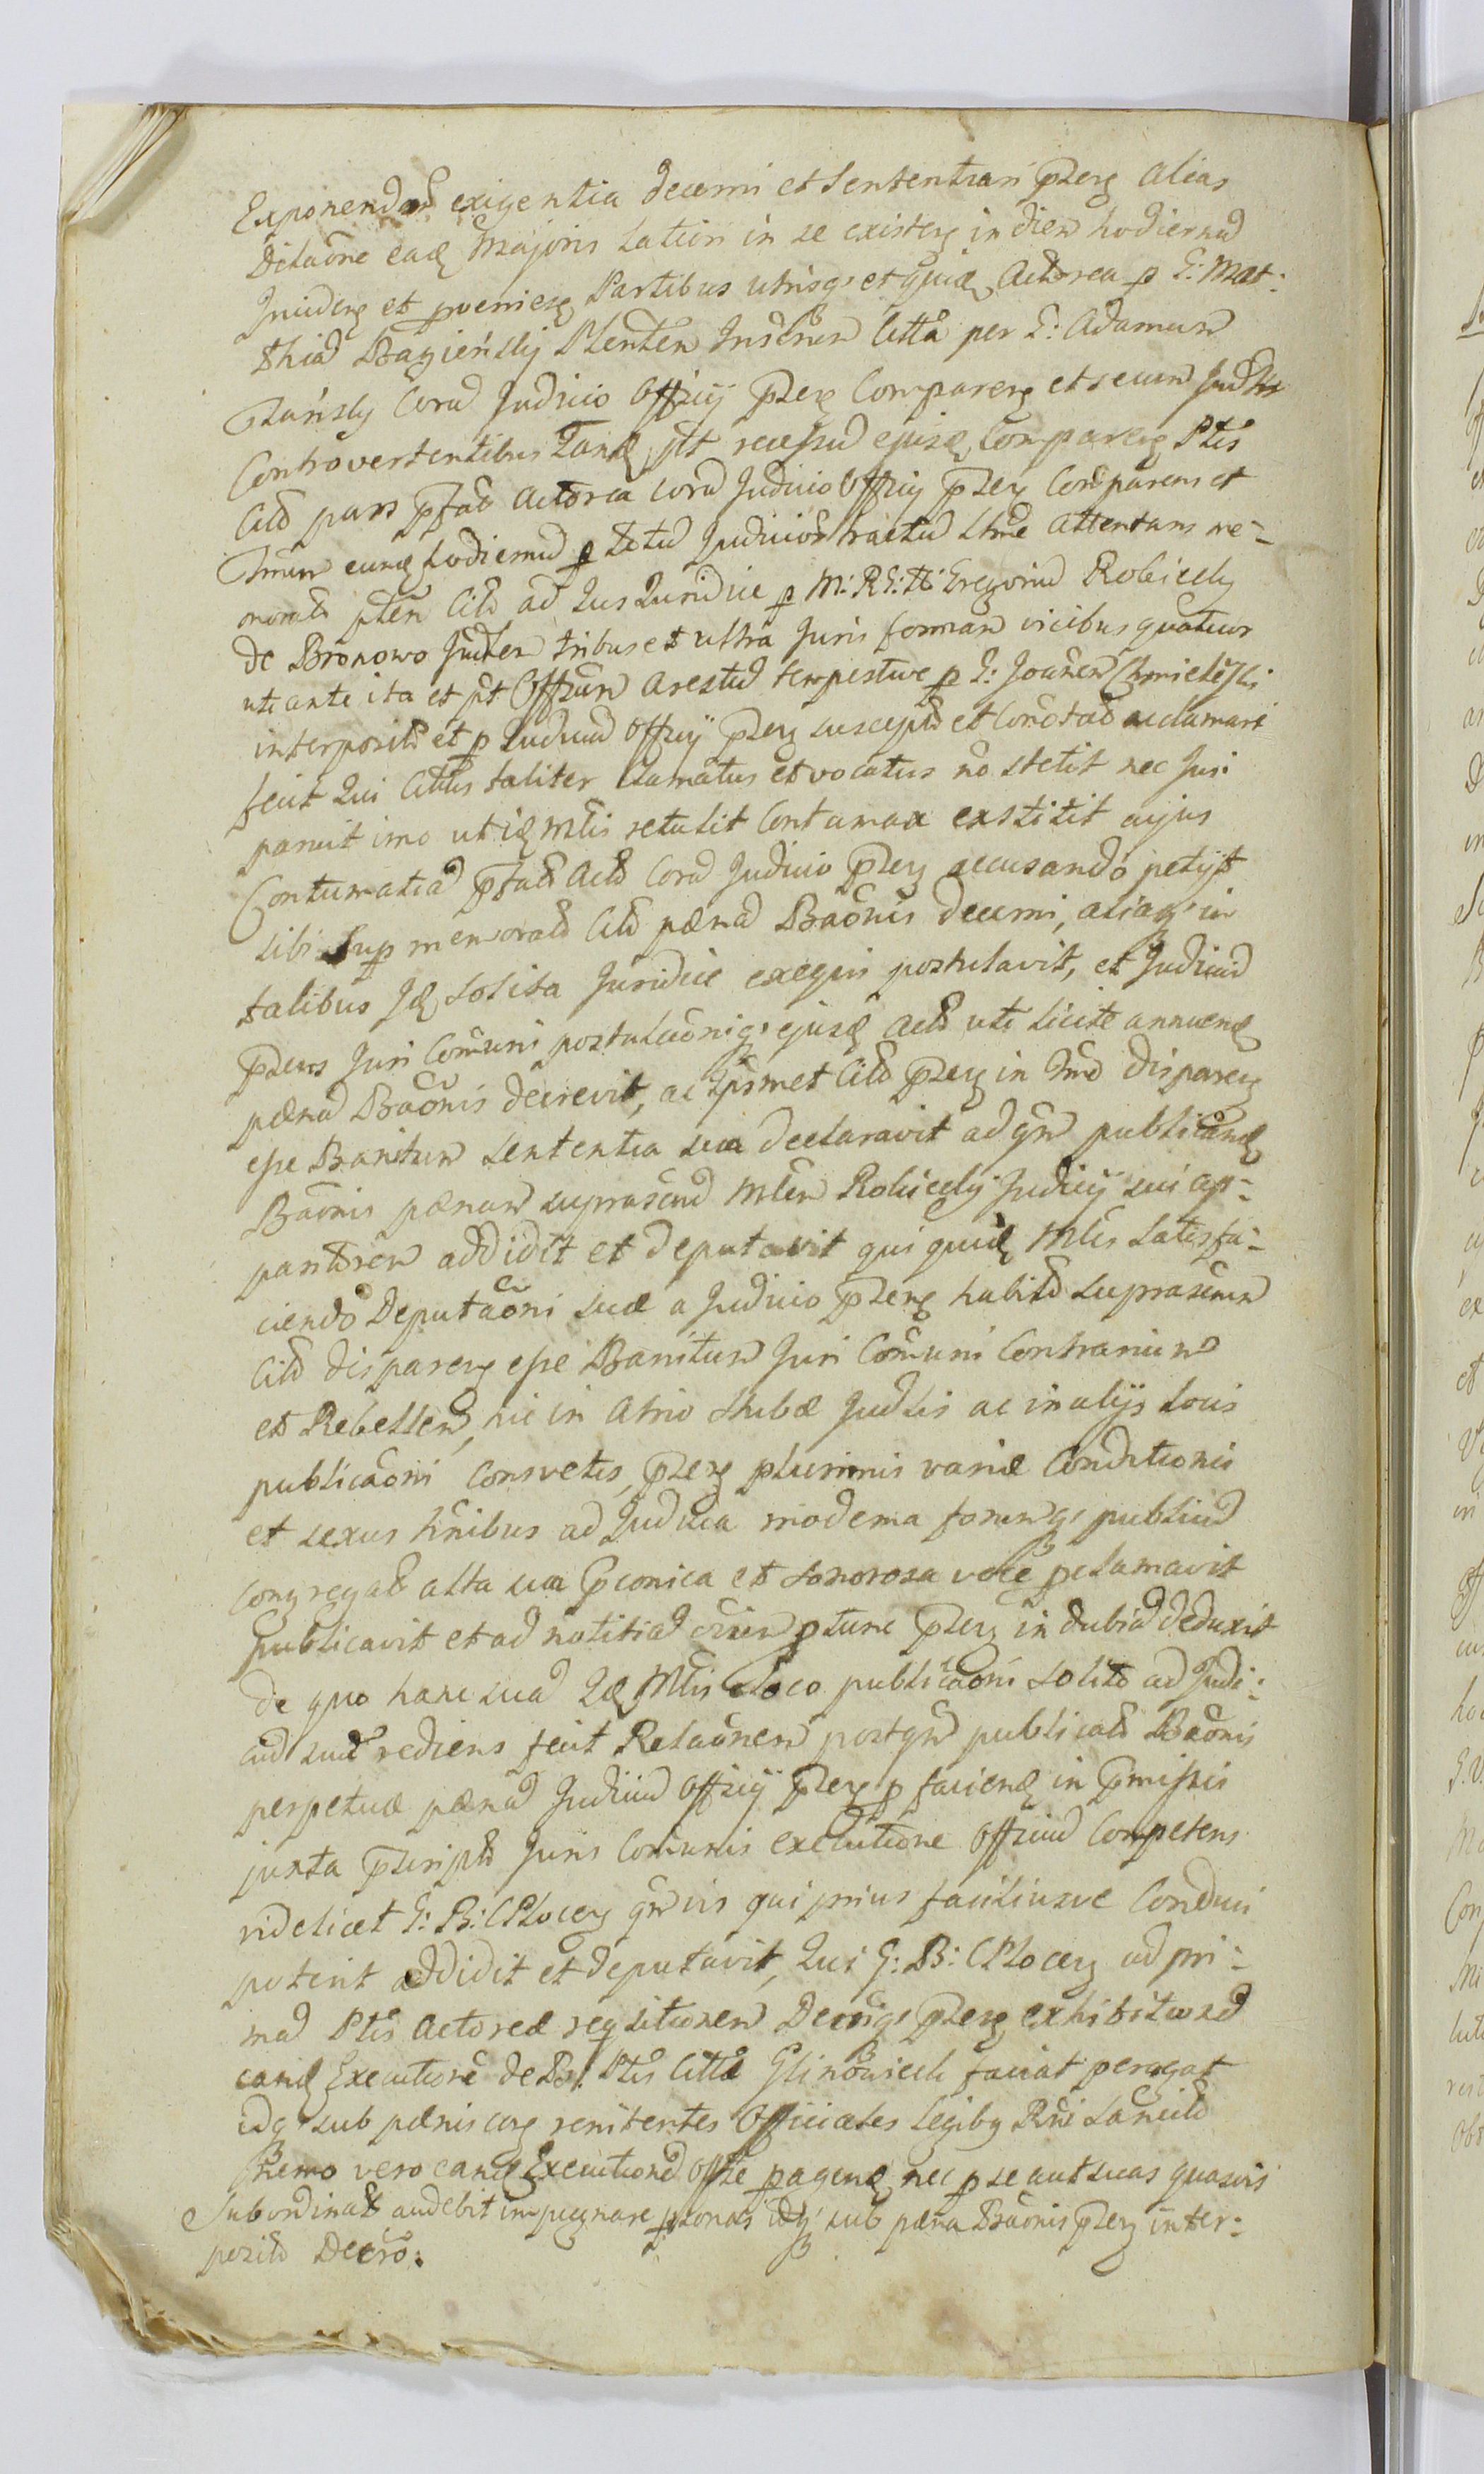 Exponendar exigentia decerni et Sententiari pzeng alias
Dilaone eand Majoris Latiori in se existeng in diem hodiernad
Inciden et proveniens Partibus utrisq; et quid Actorea p G: Mat:
thiad Bagieński Plenten Inscrum Citta per G: Adamum
Zański Corad Judicio Officij pzeng Compareng et secum Judlr
Controvertentibus Tand pst recessud ejusd Compareng Ptis
Citd pars pfatt Actorea corad Judicio Officij pzeng Comparens et
Tmnum eund hodiernud p totud Judicior tractud Lttme attentans me-
moratd pten Citd ad Jus Juridice p M: R G: Gregoriud Robicely
de Bronowo Judlem tribus et ultra Juris formam vicibus quatuor
uti ante ita et pt Offzum Arestud tempestive p G: Joanem Chmielewski
interpositd et p Judiciud Officij pzeng susceptd et Conotatd acclamari
fecit Qui Cittus taliter clamatus et vocatus no stetit nec Juri
paruit imo uti id Mtlis retulit Contumax exstitit cujus
Contumatiad pfatd Actd Corad Judicio pzeng accusando petijt
sibi Sup memoratd Citd pænad Baonis decerni, aliaq; in
talibus Jd solita Juridice exequi postulavit, et Judiciud
pzens Juri Comuni postulaoniq; ejusd Actd uti licite annuend
pænad Baonis decrevit, ac Ipsmet Citd pzeng in Tmno dispareng
esse Banitum sententia sua declaravit ad qm publicand
Baonis pænam suprascrud Mtlem Robicely Judicij sui ap-
paritorem addidit et deputavit qui quid Mtlis Satisfa-
ciendo Deputaoni suæ a Judicio pzeng habitd suprascrum
Citd dispareng esse Banitum Juri Comuni Contrarium
et Rebellem, hic in Atrio Stubæ Judlis ac in alijs locis
publicaoni Consvetis, pzeng plurimis variæ Conditionis
et sexus hnibus ad Judicia moderna forumq; publicud
congregatt alta sua pconica et sonorosa voce pclamavit
publicavit et ad notitiad oium ptunc pzeng in dubiad deduxit
de quo hanc suad Id Mtlis e Loco publicaoni solito ad Judi:
ciud suud rediens fecit Relaonem postqm publicatd Baonis
perpetuæ pænad Judiciud Officij pzeng p faciend in pmissis
juxta pscriptd Juris Comunis executione Officiud Competens
videlicet G: B: C Ploceng qm vis qui prius faciliusve Conduci
poterit addidit et deputavit, Qui G: B: C Plocens ad pri-
mad Ptis Actoreæ reqsitionem Decriq; pzeng exhibitiond
eand Executione de Bo: Ptis Cittæ Glinowiecki faciat peragat
idq; sub pænis cong renitentes Officiales legibg Rni Sancitd
Nemo vero eand Executiond Offle pagend nec p se aut suas quasvis
Subordinatt audebit impugnare psonas idq; sub pæna Baonis pzeng inter:
positd Decro.